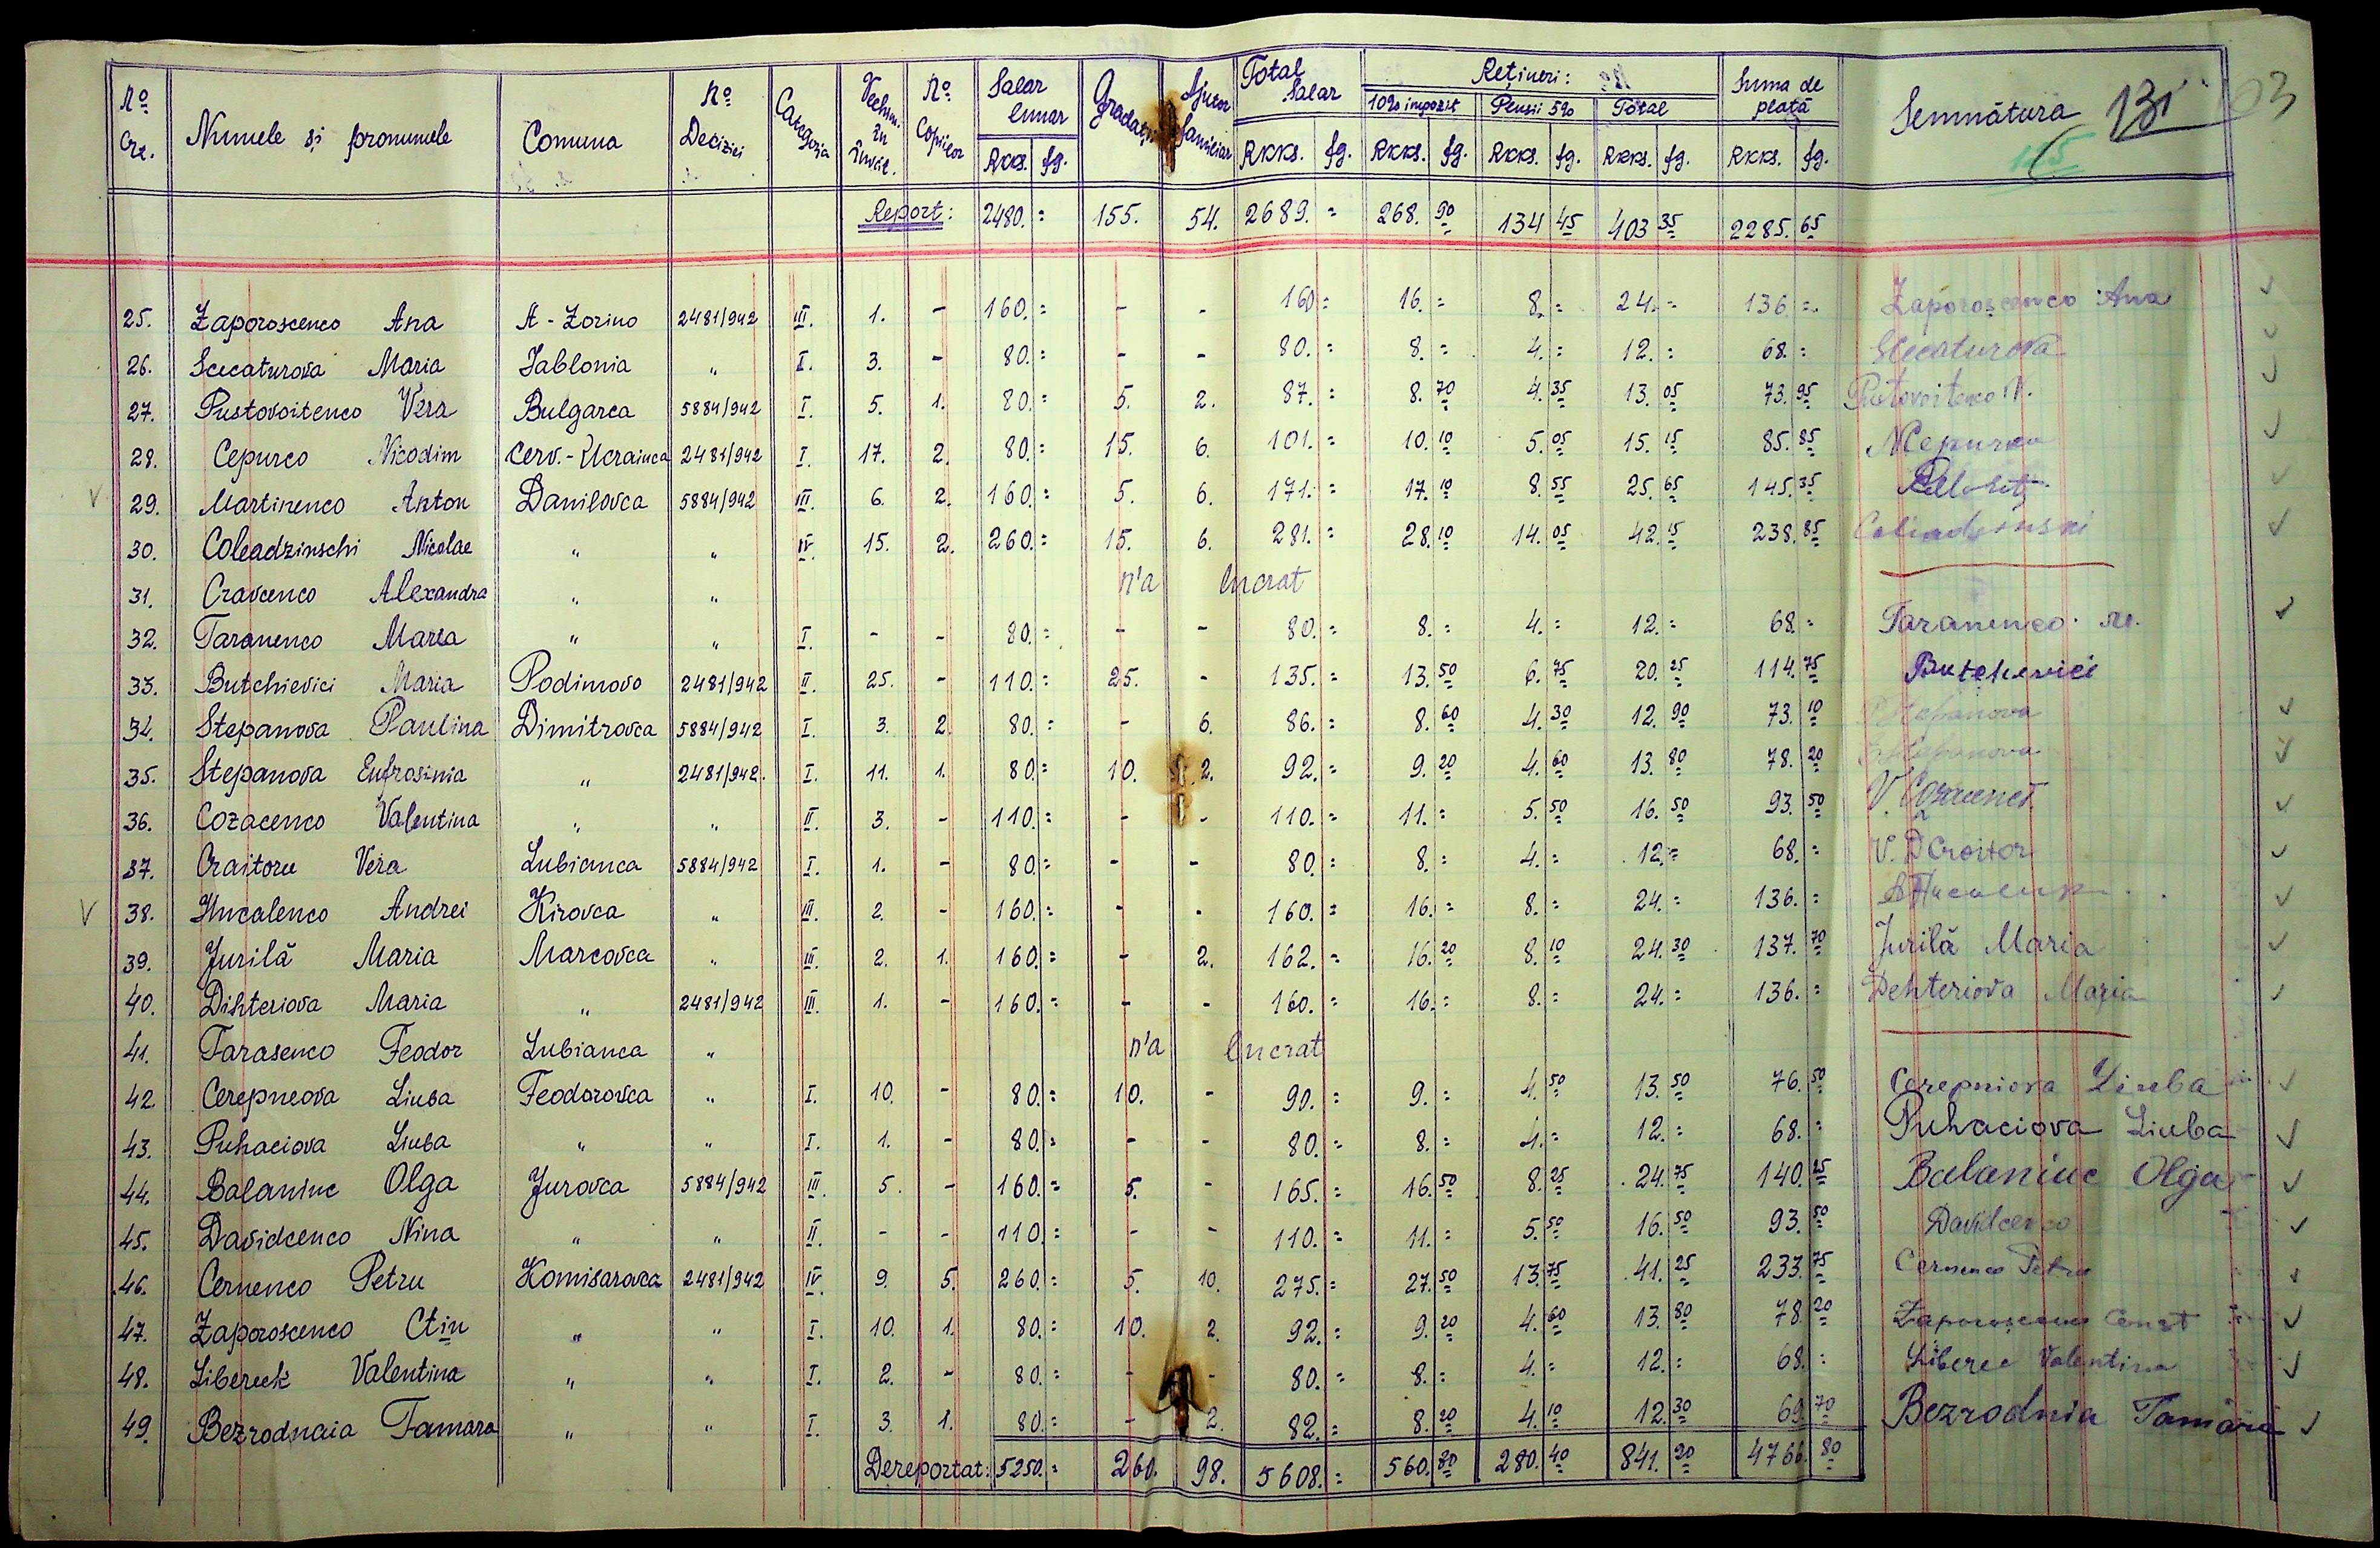 No Crt. Numele și pronumele Comuna No Deciziei Categoria Vechim. în Învăț. No Copiilor Salar lunar RKKS. fg. Gradații Ajutor familiar Total Salar RKKS. fg. Rețineri: 10% impozit RKKS. fg. Pensii 5% RKKS. fg. Total RKKS. fg. Suma de plată RKKS. fg. Semnătura 131 03
115
Report: 2480.= 155. 54. 2689.= 268.90 134 45 403 35 2285.65
25. Zaporoscenco Ana A-Zorino 2481/942 III. 1. - 160.= - - 160= 16.= 8.= 24.= 136.= Zaporoscenco Ana
26. Scecaturova Maria Jablonia " I. 3. - 80.= - - 80.= 8.= 4.= 12.= 68.= Scecaturova
27. Pustovoitenco Vera Bulgarca 5884/942 I. 5. 1. 80.= 5. 2. 87.= 8.70 4.35 13.05 73.95 Pustovoitenco V.
28. Cepurco Nicodim Cerv.-Ucrainca 2481/942 I. 17. 2. 80.= 15. 6. 101.= 10.10 5.05 15.15 85.85 NCepurco
V 29. Martinenco Anton Danilovca 5884/942 III. 6. 2. 160.= 5. 6. 171.= 17.10 8.55 25.65 145.35
30. Coleadzinschi Nicolae " " IV. 15. 2. 260.= 15. 6. 281.= 28.10 14.05 42.15 238.85 Coliadzinski
31. Cravcenco Alexandra " " n'a lucrat
32. Taranenco Maria " " I. - - 80.= - - 80.= 8.= 4.= 12.= 68.= Taranenco M.
33. Butchievici Maria Podimovo 2481/942 II. 25. - 110.= 25. - 135.= 13.50 6.75 20.25 114.75 Butchevici
34. Stepanova Paulina Dimitrovca 5884/942 I. 3. 2. 80.= - 6. 86.= 8.60 4.30 12.90 73.10 PStepanova
35. Stepanova Eufrosinia " 2481/942. I. 11. 1. 80.= 10. 2. 92.= 9.20 4.60 13.80 78.20 EStepanova
36. Cozacenco Valentina " " II. 3. - 110.= - - 110.= 11.= 5.50 16.50 93.50 V.
37. Craitoru Vera Lubianca 5884/942 I. 1. - 80.= - - 80.= 8.= 4.= 12.= 68.= V. D Croitor
V 38. Hucalenco Andrei Kirovca " III. 2. - 160.= - - 160.= 16.= 8.= 24.= 136.=
39. Jurilă Maria Marcovca " III. 2. 1. 160.= - 2. 162.= 16.20 8.10 24.30 137.70 Jurilă Maria
40. Dihteriova Maria " 2481/942 III. 1. - 160.= - - 160.= 16.= 8.= 24.= 136.= Dehteriova Maria
41. Tarasenco Feodor Lubianca " n'a lucrat
42. Cerepneova Liuba Feodorovca " I. 10. - 80.= 10. - 90.= 9.= 4.50 13.50 76.50 Cerepniova Liuba
43. Puhaciova Liuba " " I. 1. - 80.= - - 80.= 8.= 4.= 12.= 68.= Puhaciova Liuba
44. Balaniuc Olga Jurovca 5884/942 III. 5. - 160.= 5. - 165.= 16.50 8.25 24.75 140.25 Balaniuc Olga
45. Davidcenco Nina " " II. - - 110.= - - 110.= 11.= 5.50 16.50 93.50 Davidcenco
46. Cernenco Petru Komisarovca 2481/942 IV. 9. 5. 260.= 5. 10. 275.= 27.50 13.75 41.25 233.75 Cernenco Petru
47. Zaporoscenco Ctin " " I. 10. 1. 80.= 10. 2. 92.= 9.20 4.60 13.80 78.20 Zaporoscenco Const
48. Libereck Valentina " " I. 2. - 80.= - - 80.= 8.= 4.= 12.= 68.= Liberec Valentina
49. Bezrodnaia Tamara " " I. 3. 1. 80.= - 2. 82.= 8.20 4.10 12.30 69.70 Bezrodnia Tamara
Dereportat: 5250.= 260. 98. 5608.= 560.80 280.40 841.20 4766.80